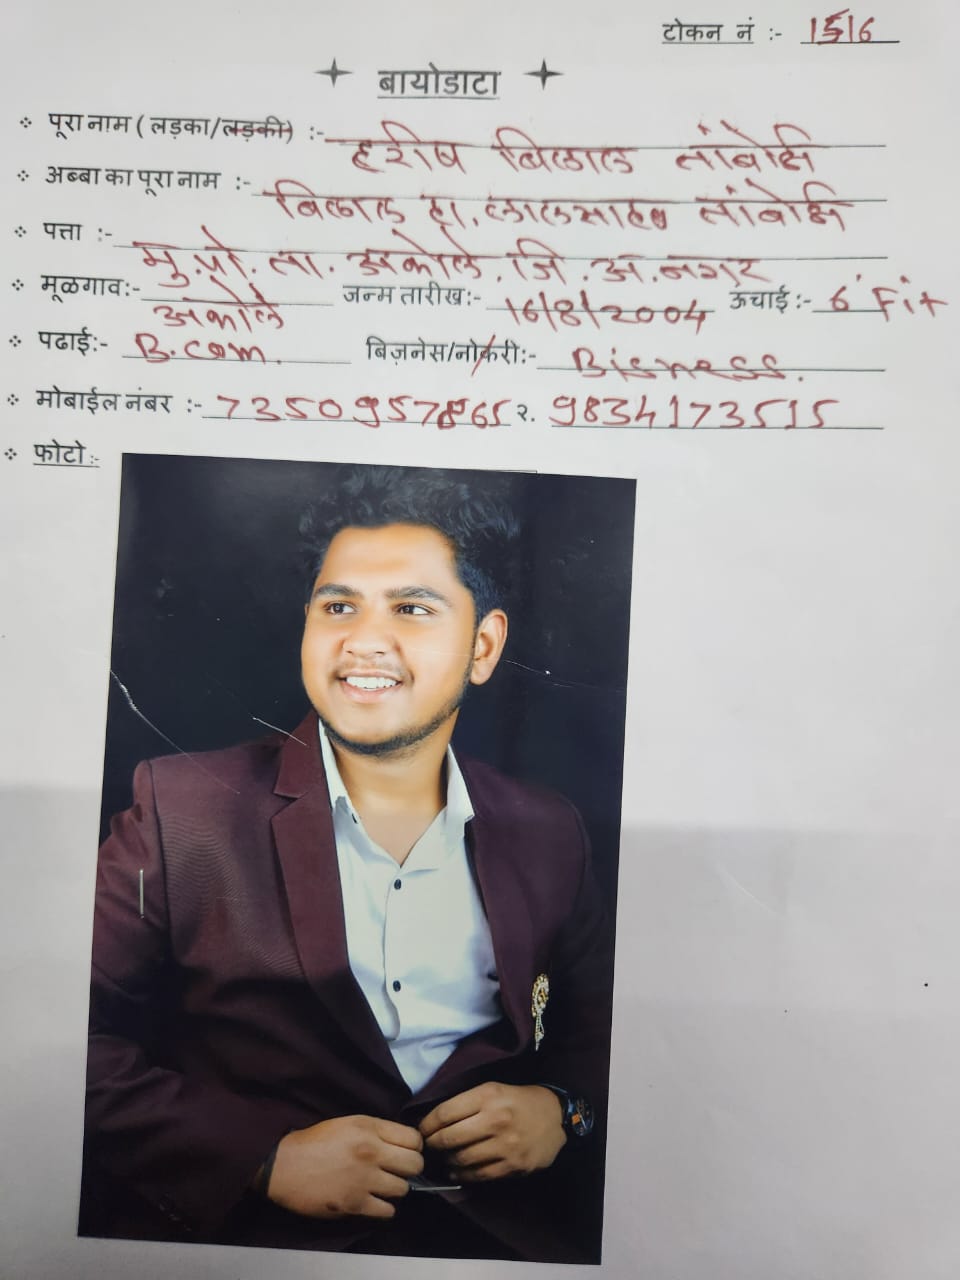 टोकन नं :- 1516
बायोडाटा
पूरा नाम ( लड़का/लड़की) :- हरीष बिलाल तांबोळी
अब्बा का पूरा नाम :- बिलाल हा. लालसाहब तांबोळी
पत्ता :- मु.पो. ता. अकोले. जि. अ.नगर
मूळगाव:- अकोले जन्म तारीख:- 16/8/2004 ऊंचाई:- 6' Fit
पढाई:- B.com. बिज़नेस/नोकरी:- Bisness.
मोबाईल नंबर :- 7350957865 २. 9834173515
फोटो:-